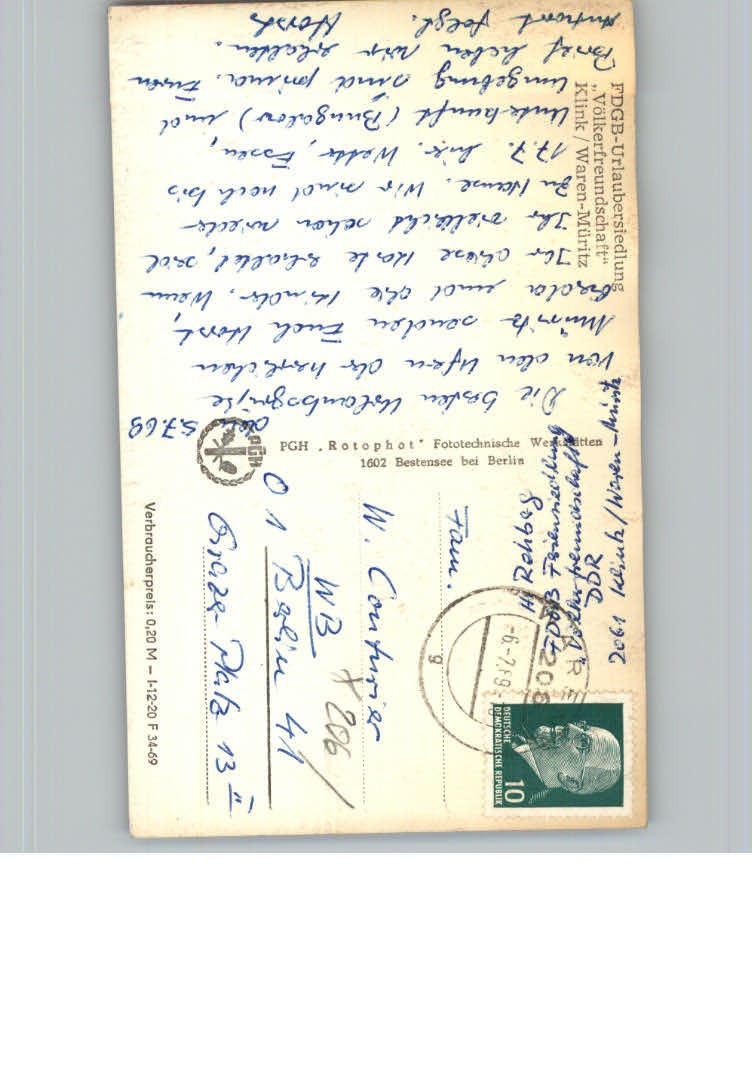 FDGB-Urlaubersiedlung
„Völkerfreundschaft"
Klink / Waren-Müritz
den 5.7.69
Die besten Urlaubsgrüße
von den Ufern der herrlichen
Müritz senden Euch Horst,
Gerda und die Kinder. Wenn
Ihr diese Karte erhaltet, seid
Ihr vielleicht schon wieder
zu Hause. Wir sind noch bis
17.7. hier. Wetter, Essen,
Unterkunft (Bungalow) und
Umgebung sind prima. Euren
Brief haben wir erhalten.
Antwort folgt. Horst
PGH „Rotophot" Fototechnische Werkstätten
1602 Bestensee bei Berlin
PGH
H. Rehberg
FDGB Feriensiedlung
"Völkerfreundschaft"
DDR
2061 Klink/Waren-Müritz
206
-6.-7.69
g
DEUTSCHE
DEMOKRATISCHE REPUBLIK
10
Fam.
W. Couturier
WB x 206/
O 1 Berlin 41
Grazer Platz 13 II
Verbraucherpreis: 0,20 M — I-12-20 F 34-69